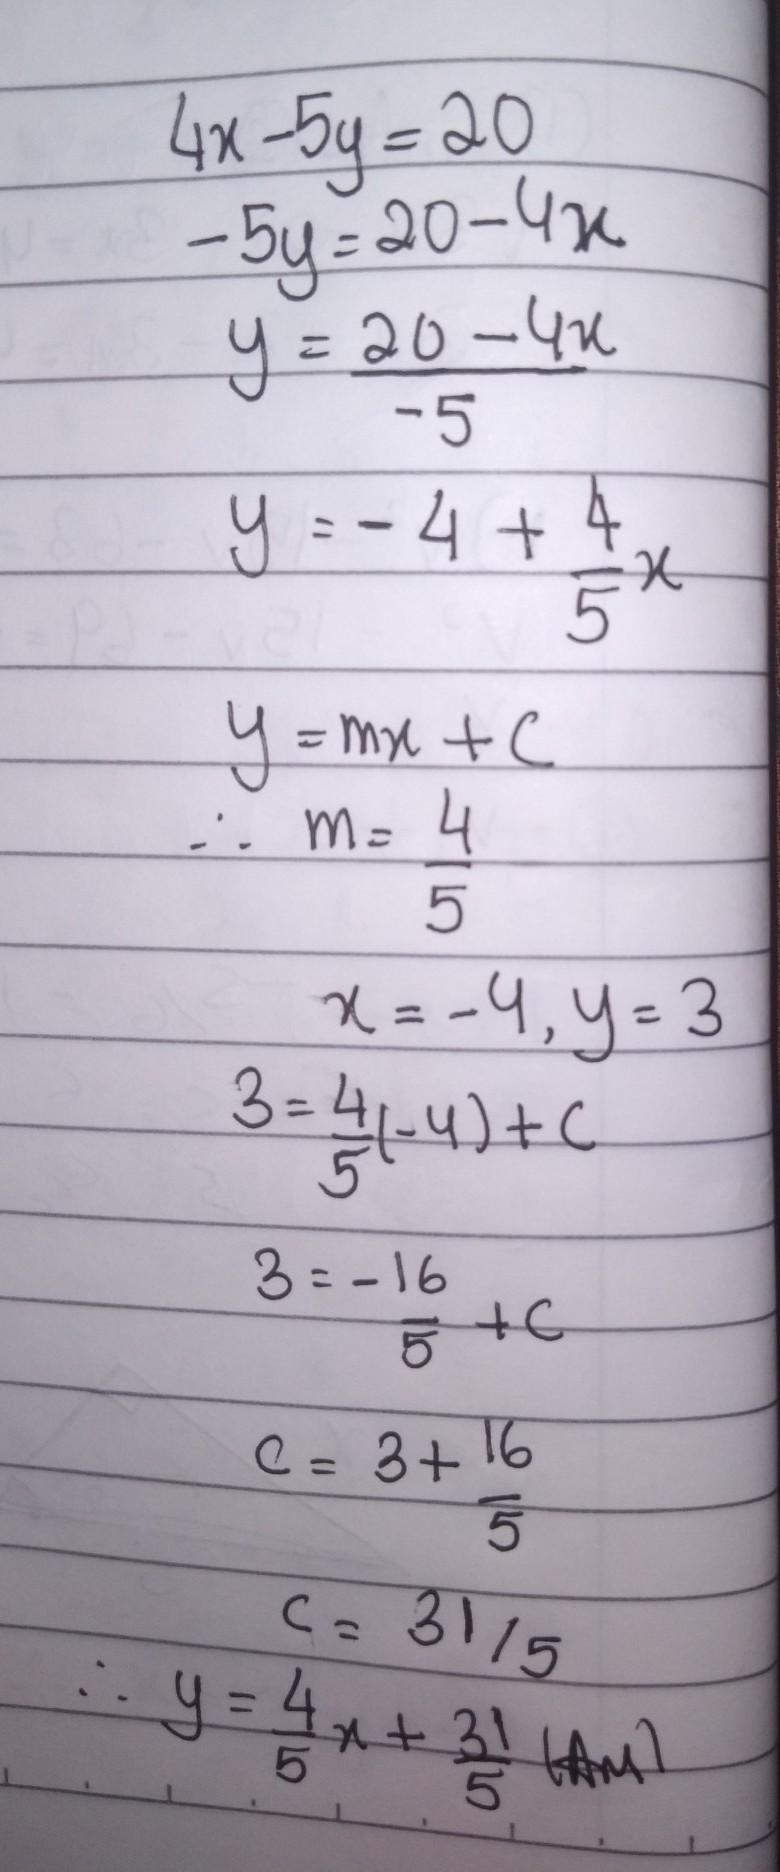 4x - 5y = 20
-5y = 20 - 4x
y = 20 - 4x
-5
y = -4 + 4/5 x
y = mx + c
∴ m = 4/5
x = -4, y = 3
3 = 4/5 (-4) + c
3 = -16/5 + c
c = 3 + 16/5
c = 31/5
∴ y = 4/5 x + 31/5 (Ans)